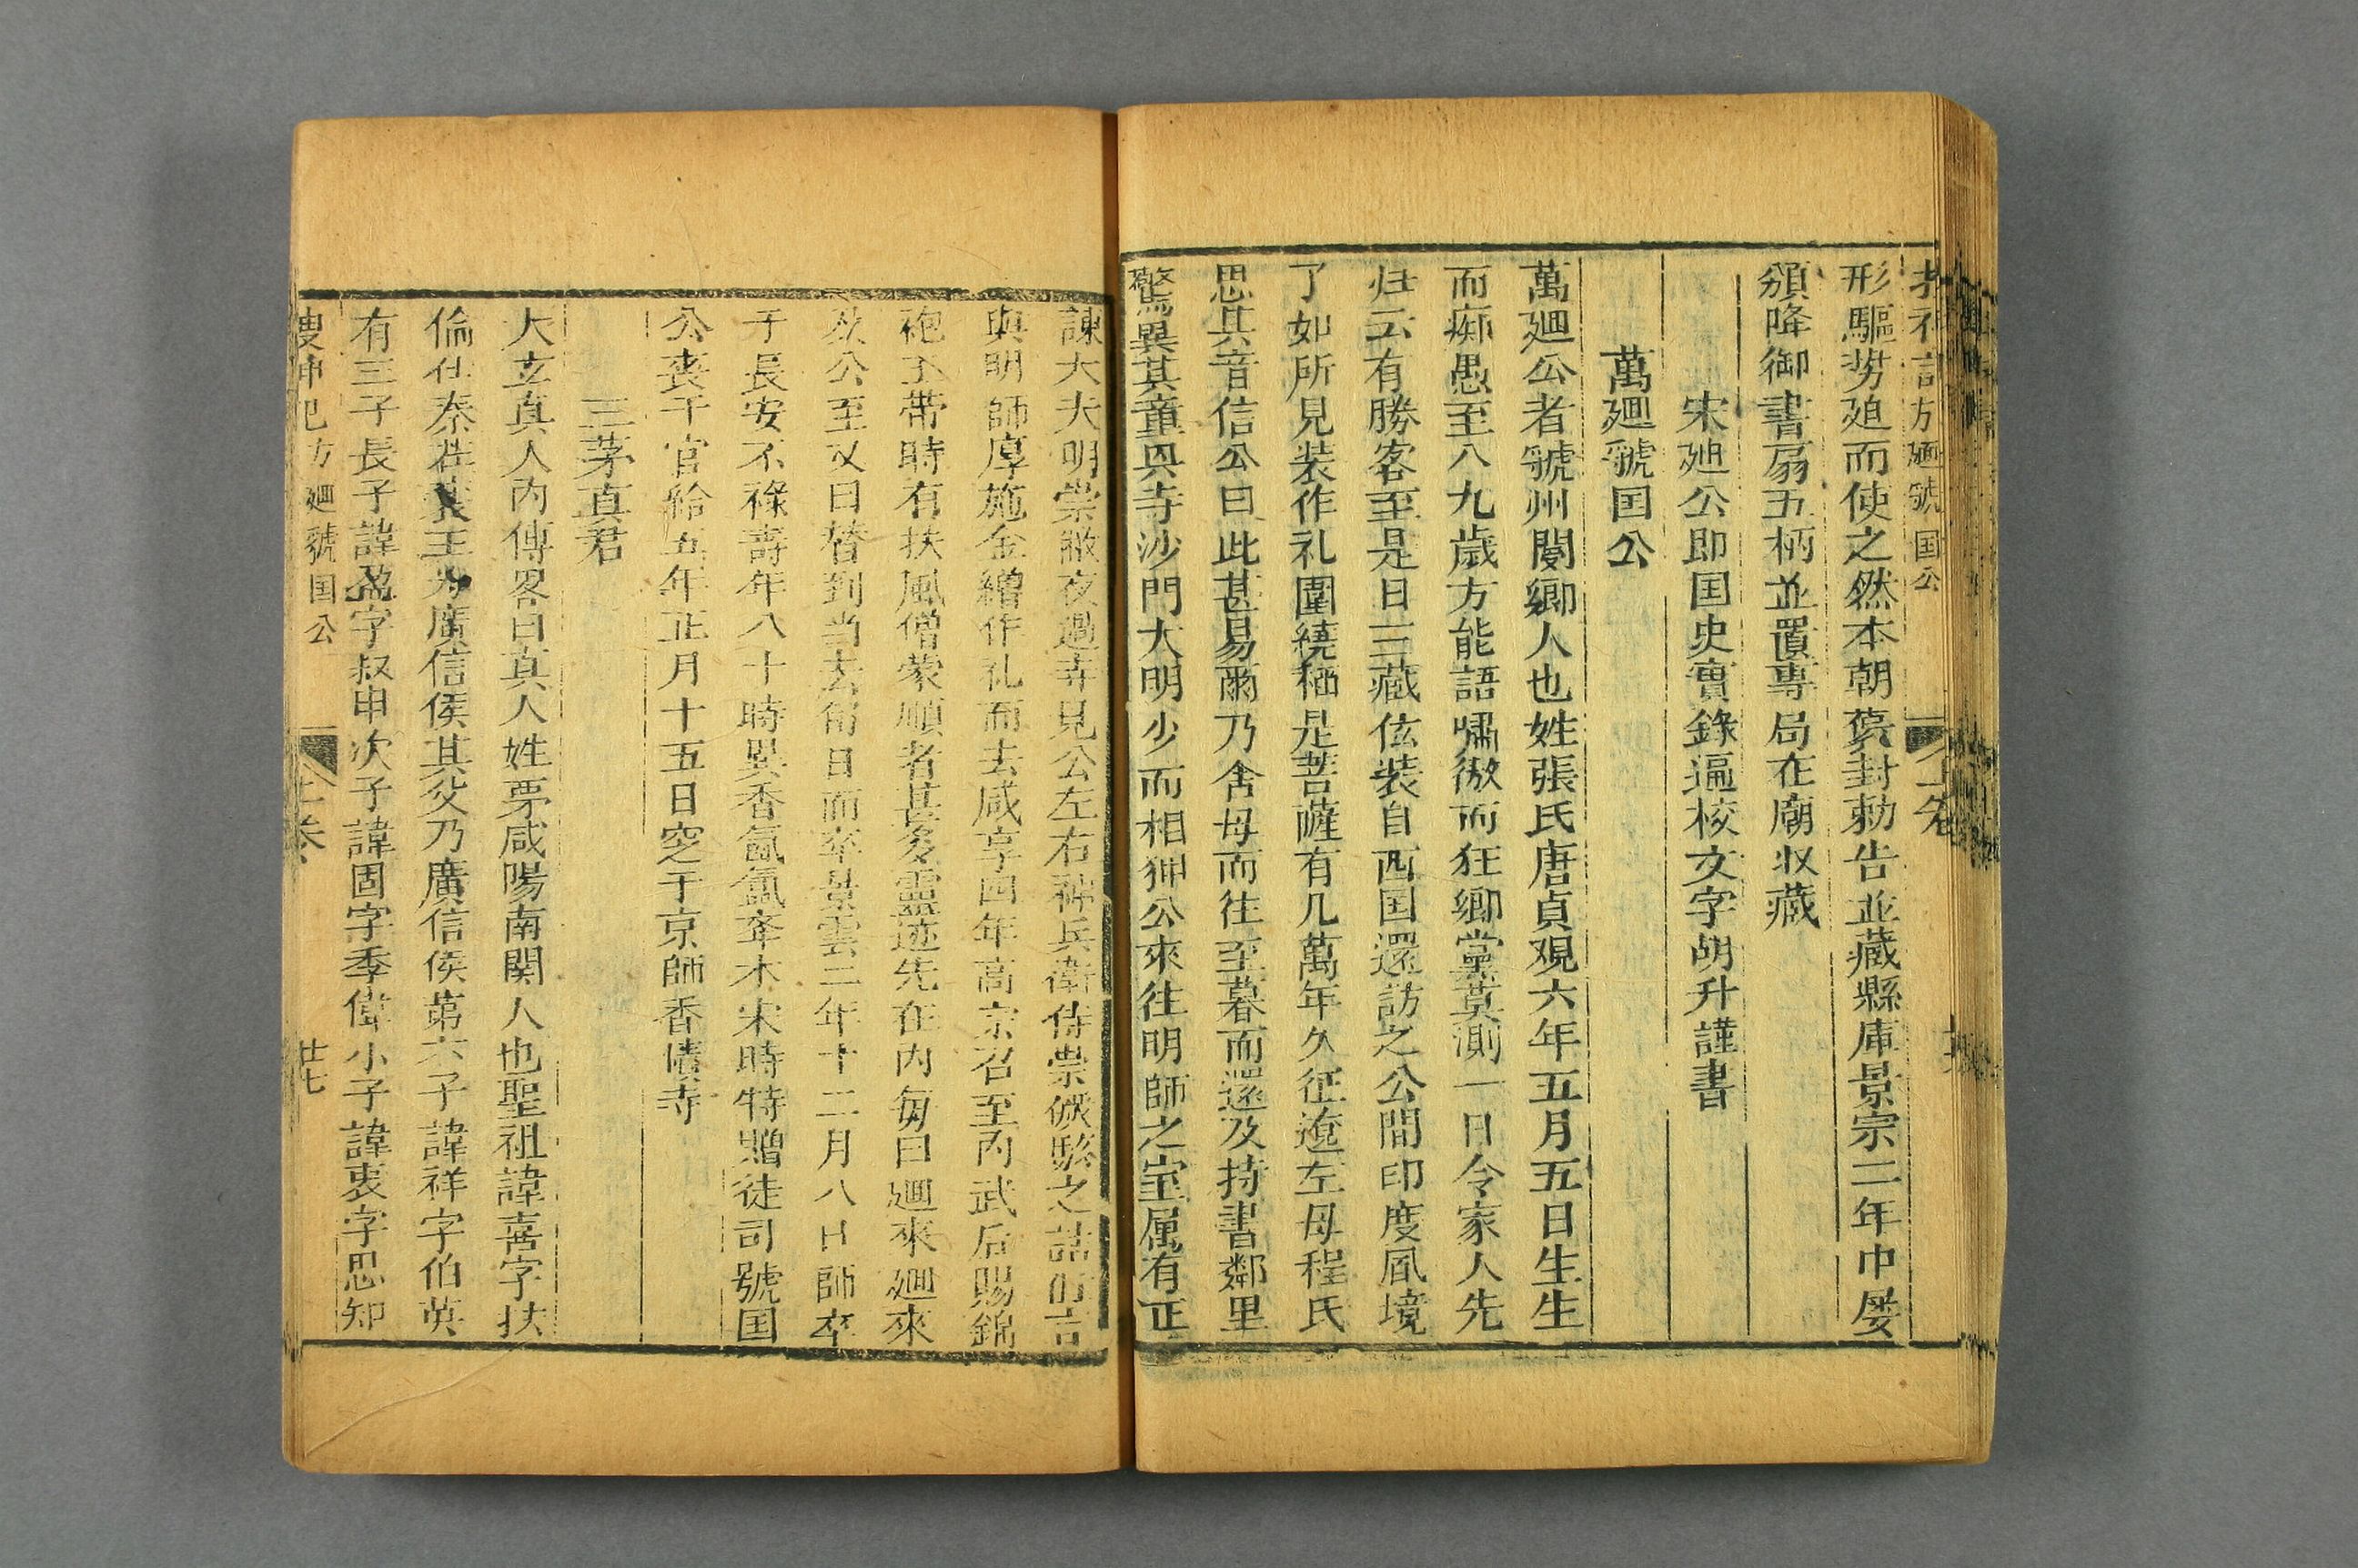 方廻虢国公
上卷
形驅勞廹而使之然本朝舊封勅告並藏縣庫景宗二年巾屡
頒降御書扇五柄並置專局在廟収藏
宋廹公即国史實錄逼校文字胡升謹書
萬廻虢国公
萬廻公者虢州閿鄉人也姓張氏唐貞观六年五月五日生生
而痴愚至八九歲方能語嘯傲而狂鄉黨莫測一日令家人先
归云有勝客至是日三藏伭装自西国還訪之公間印度風境
了如所見装作礼圍繞稱是菩薩有几萬年久征遼左母程氏
思其音信公曰此甚易爾乃舍母而往至暮而還及持書鄰里
驚異其童與寺沙門大明少而相狎公來往明師之室属有正
諫大夫明崇儼夜過寺見公左右神兵衛侍崇儼駭之詰旦言
與明師厚施金繒作礼而去咸亨四年高宗召至內武后賜錦
袍玉帶時有扶風僧蒙順者甚多靈迹先在內每曰廻來廻來
及公至又曰替到当去旬日而卒景雲二年十二月八日師卒
于長安不祿壽年八十時異香氤氳卒木宋時特贈徒司號国
公喪干官給五年正月十五日窆于京師香債寺
三茅真君
大玄真人內傳畧曰真人姓茅咸陽南関人也聖祖諱喜字扶
倫仕秦莊襄王为廣信侯其父乃廣信侯苐六子諱祥字伯英
有三子長子諱盈字叔申次子諱固字季偉小子諱衷字思知
搜神記 方廻號国公
上卷
廿七